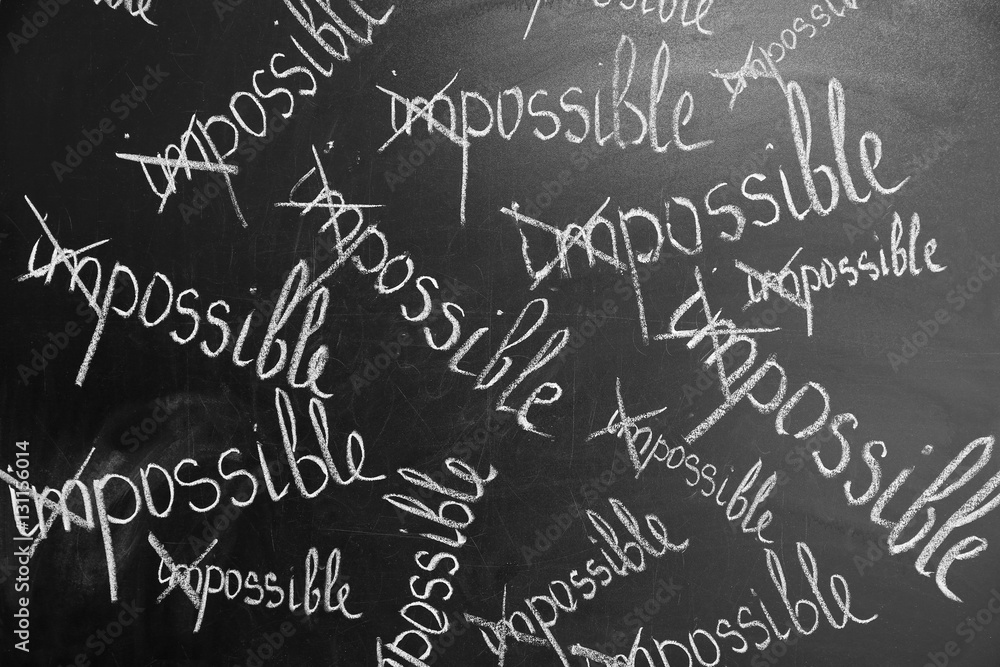 impossible
impossible
impossible
impossible
impossible
impossible
impossible
impossible
impossible
impossible
impossible
impossible
possible
impossible
impossible
Adobe Stock | #131156014